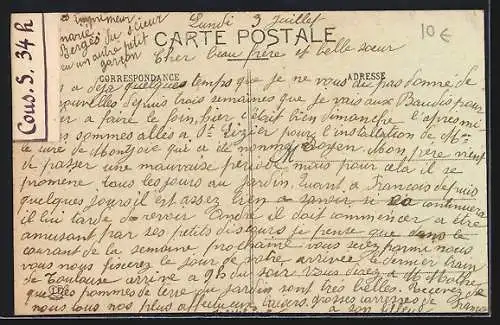 imprimeur
Lundi 3 Juillet
10€
Bergès du scieur
un autre petit
garçon
CARTE POSTALE
Cher beau frère et belle sœur
CORRESPONDANCE
ADRESSE
Cons. S. 34 h
a deja quelques temps que je ne vous ai pas donné de
nouvelles depuis trois semaines que je vais aux Baudis pour
a faire le foin, hier c'était bien dimanche l'apres midi
nous sommes allés a St Lizier pour l'installation de Mr
le curé de Montjoie qui a été nommé Doyen. Mon père vient
de passer une mauvaise periode mais pour cela il se
promene tous les jours au jardin, Quant a François depuis
quelques jours il est assez bien a savoir si ca continuera
il lui tarde de revoir André il doit commencer a être
amusant par ses petits discours je pense que dans le
courant de la semaine prochaine vous serez parmi nous
vous nous fixerez le jour de votre arrivée le dernier train
de Toulouse arrive a 9h du soir Vous direz a Mr
que les pommes de terre du jardin sont très belles. Recevez de
nous tous nos plus affectueux baisers grosses caresses de
a son filleul